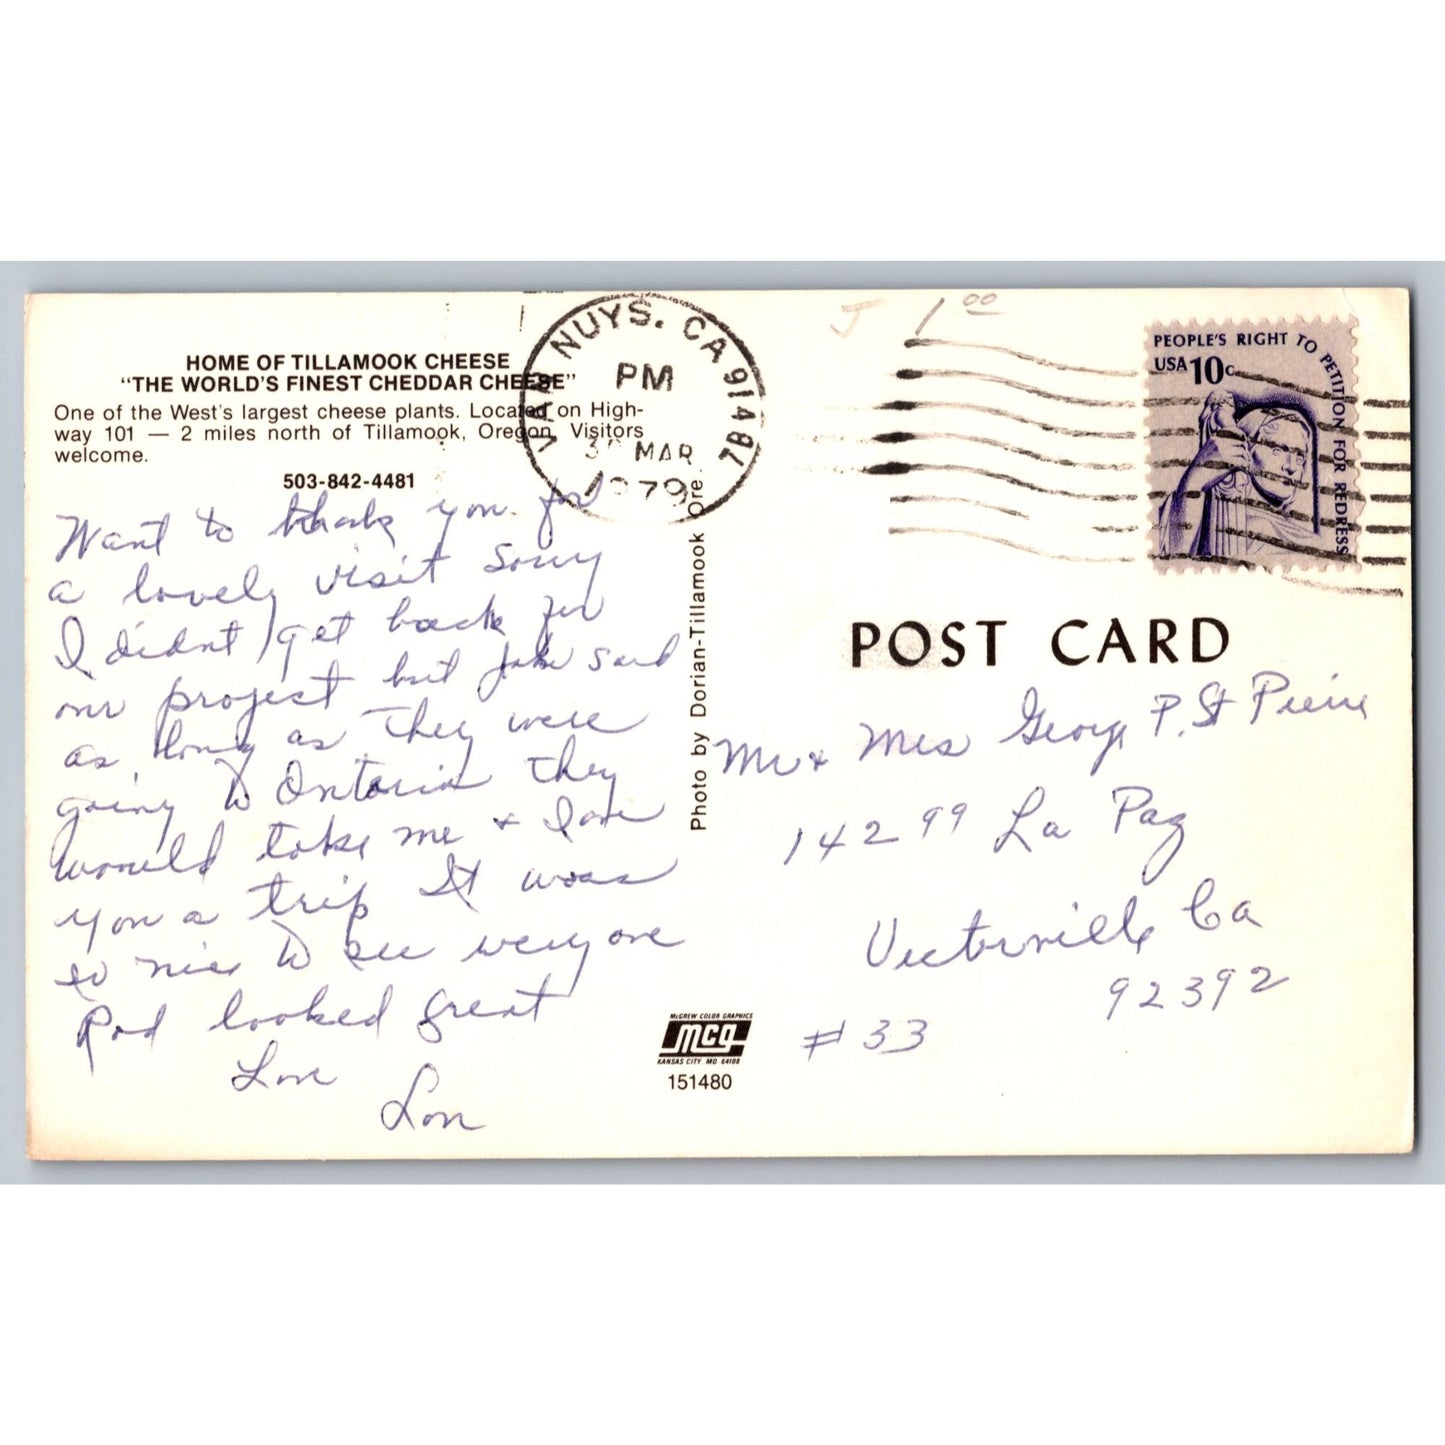 HOME OF TILLAMOOK CHEESE
"THE WORLD'S FINEST CHEDDAR CHEESE"
One of the West's largest cheese plants. Located on High-
way 101 — 2 miles north of Tillamook, Oregon. Visitors
welcome.
503-842-4481
Want to thank you for
a lovely visit Sorry
I didnt get back for
our project but Jake said
as long as they were
going to Ontario they
would take me &
you a trip It was
so nice to see everyone
Rod looked great
Love
Lon
Photo by Dorian-Tillamook Ore.
McGREW COLOR GRAPHICS
mcg
KANSAS CITY, MO 64108
151480
VAN NUYS. CA 914
PM
MAR
1979
J 1 00
PEOPLE'S RIGHT TO PETITION FOR REDRESS
USA 10c
POST CARD
Mr & Mrs George P. St Pierre
14299 La Paz
Victorville Ca
92392
# 33